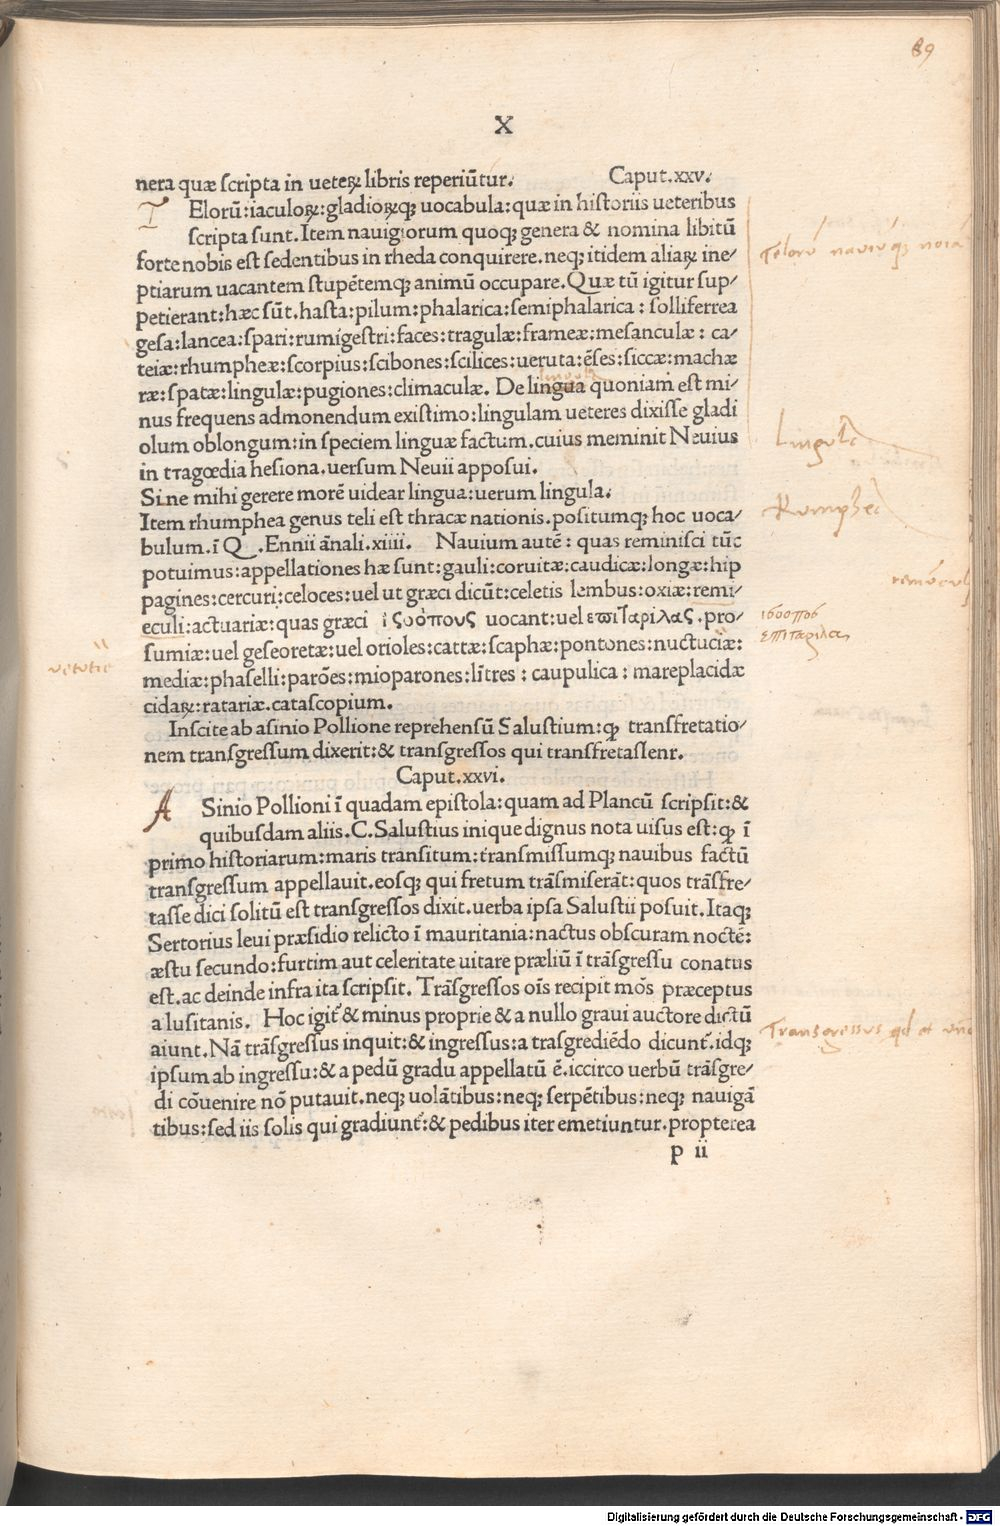 89
X
nera quæ ſcripta in ueteꝝ libris reperiũtur. Caput.xxv.
T Elorũ:iaculoꝝ:gladioꝝqꝫ uocabula:quæ in hiſtoriis ueteribus
ſcripta ſunt.Item nauigiorum quoqꝫ genera & nomina libitũ
forte nobis eſt ſedentibus in rheda conquirere.neqꝫ itidem aliaꝝ ine-
ptiarum uacantem ſtupẽtemqꝫ animũ occupare.Quæ tũ igitur ſup-
petierant:hæc ſũt.haſta:pilum:phalarica:ſemiphalarica:ſolliferrea
geſa:lancea:ſpari:rumigeſtri:faces:tragulæ:frameæ:meſanculæ:ca-
teiæ:rhumpheæ:ſcorpius:ſcibones:ſcilices:ueruta:ẽſes:ſiccæ:machæ
ræ:ſpatæ:lingulæ:pugiones:climaculæ. De lingua quoniam eſt mi-
nus frequens admonendum exiſtimo:lingulam ueteres dixiſſe gladi
olum oblongum:in ſpeciem linguæ factum.cuius meminit Neuius
in tragœdia heſiona.uerſum Neuii appoſui.
Sine mihi gerere morẽ uidear lingua:uerum lingula.
Item rhumphea genus teli eſt thracæ nationis.poſitumqꝫ hoc uoca-
bulum.ĩ Q .Ennii ãnali.xiiii. Nauium autẽ: quas reminiſci tũc
potuimus:appellationes hæ ſunt:gauli:coruitæ:caudicæ:longæ:hip
pagines:cercuri:celoces:uel ut græci dicũt:celetis lembus:oxiæ:remi-
eculi:actuariæ:quas græci ἱςοόπους uocant:uel επιΤαριλας.pro-
ſumiæ:uel geſeoretæ:uel orioles:cattæ:ſcaphæ:pontones:nuctuciæ:
mediæ:phaſelli:parões:mioparones:lĩtres:caupulica:mareplacidæ
cidaꝝ:ratariæ.cataſcopium.
Inſcite ab aſinio Pollione reprehenſũ Saluſtium:ꝙ tranſfretatio-
nem tranſgreſſum dixerit:& tranſgreſſos qui tranſfretaſſenr.
Caput.xxvi.
A Sinio Pollioni ĩ quadam epiſtola:quam ad Plancũ ſcripſit:&
quibuſdam aliis.C.Saluſtius inique dignus nota uiſus eſt:ꝙ ĩ
primo hiſtoriarum:maris tranſitum:tranſmiſſumqꝫ nauibus factũ
tranſgreſſum appellauit.eoſqꝫ qui fretum trãſmiſerãt:quos trãſfre-
taſſe dici ſolitũ eſt tranſgreſſos dixit.uerba ipſa Saluſtii poſuit.Itaqꝫ
Sertorius leui præſidio relicto ĩ mauritania:nactus obſcuram noctẽ:
æſtu ſecundo:furtim aut celeritate uitare præliũ ĩ trãſgreſſu conatus
eſt.ac deinde infra ita ſcripſit. Trãſgreſſos oĩs recipit mõs præceptus
a luſitanis. Hoc igit̃ & minus proprie & a nullo graui auctore dictũ
aiunt.Nã trãſgreſſus inquit:& ingreſſus:a traſgrediẽdo dicunt̃.idqꝫ
ipſum ab ingreſſu:& a pedũ gradu appellatũ ẽ.iccirco uerbũ trãſgre-
di cõuenire nõ putauit.neqꝫ uolãtibus:neqꝫ ſerpẽtibus:neqꝫ nauigã
tibus:ſed iis ſolis qui gradiunt̃:& pedibus iter emetiuntur.propterea
p ii
Telorũ nauiũqꝫ noĩa
Lingula
Rumphea
remũculi
ισοοπος
επιταριλαι
uetutie
Transgressus qd et unde
Digitalisierung gefördert durch die Deutsche Forschungsgemeinschaft - DFG